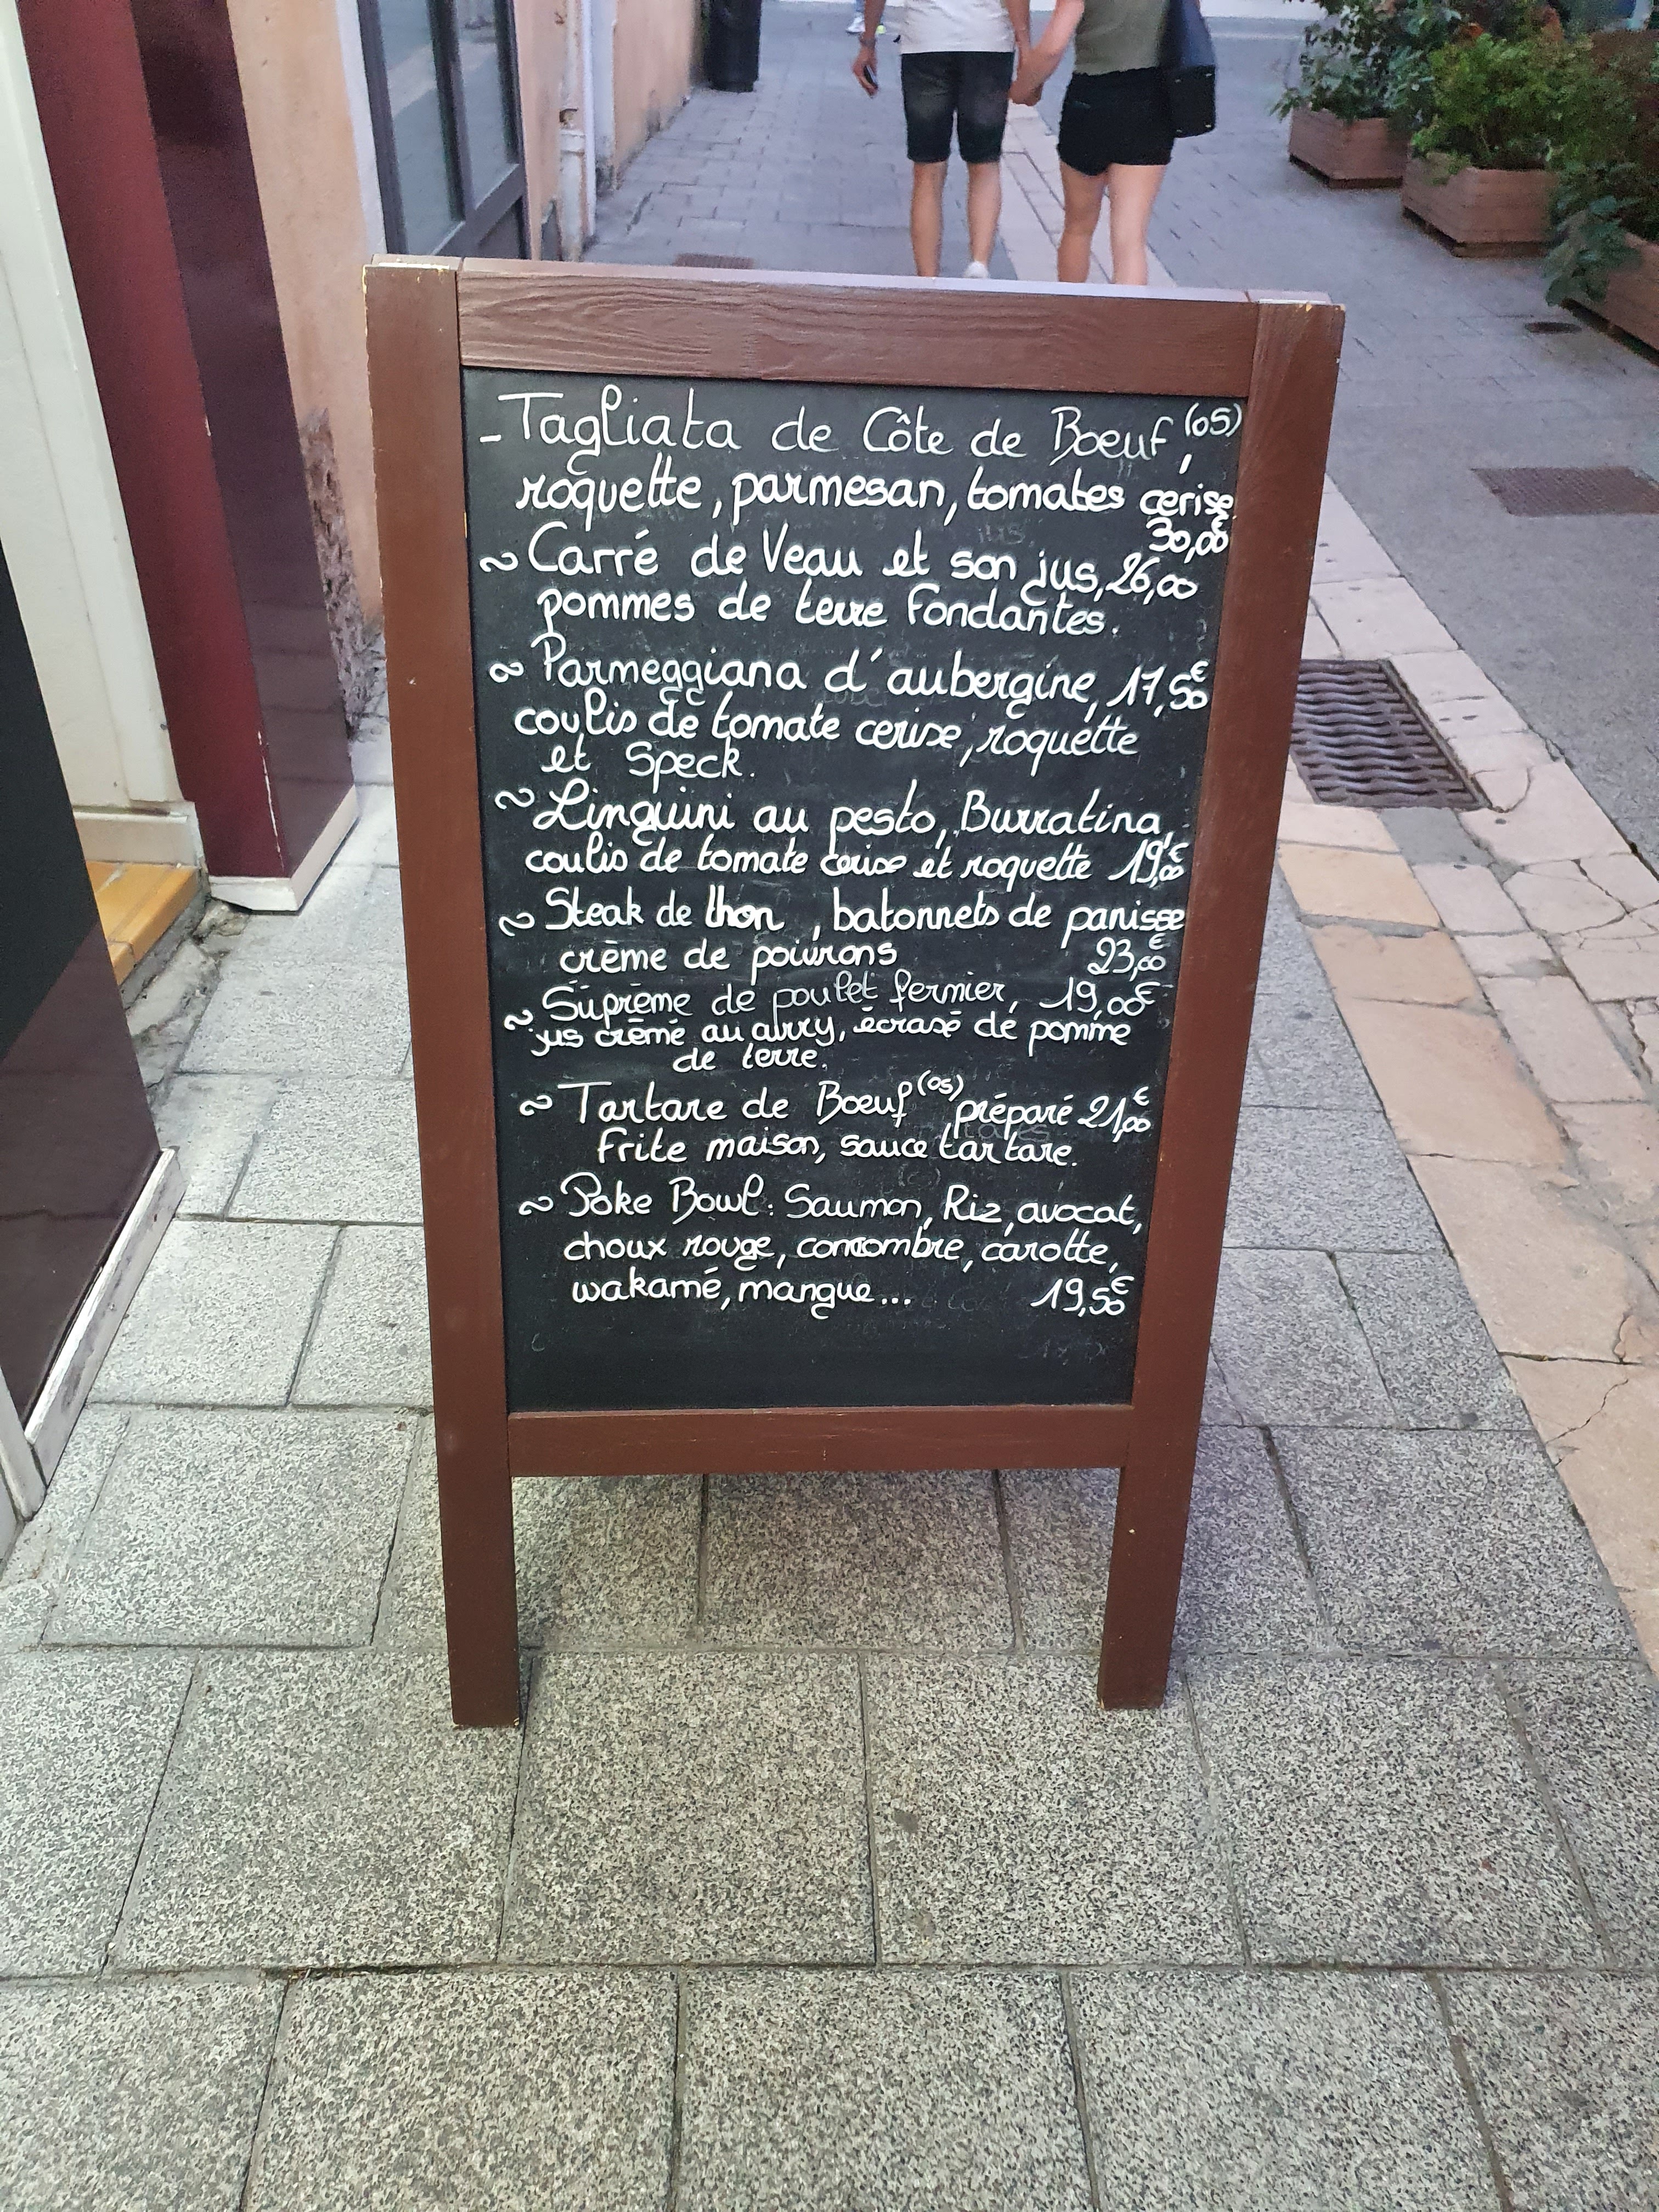 - Tagliata de Côte de Boeuf (05),
roquette, parmesan, tomates cerise
30,00€
~ Carré de Veau et son jus, 26,00
pommes de terre fondantes.
~ Parmeggiana d'aubergine, 17,50€
coulis de tomate cerise, roquette
et Speck.
~ Linguini au pesto, Burratina,
coulis de tomate cerise et roquette 19,00€
~ Steak de thon, batonnets de panisse
crème de poivrons 23,00€
~ Suprème de poulet fermier, 19,00€
jus crèmé au curry, écrasé de pomme
de terre.
~ Tartare de Boeuf (05) préparé 21,00€
Frite maison, sauce tartare.
~ Poke Bowl: Saumon, Riz, avocat,
choux rouge, concombre, carotte,
wakamé, mangue... 19,50€